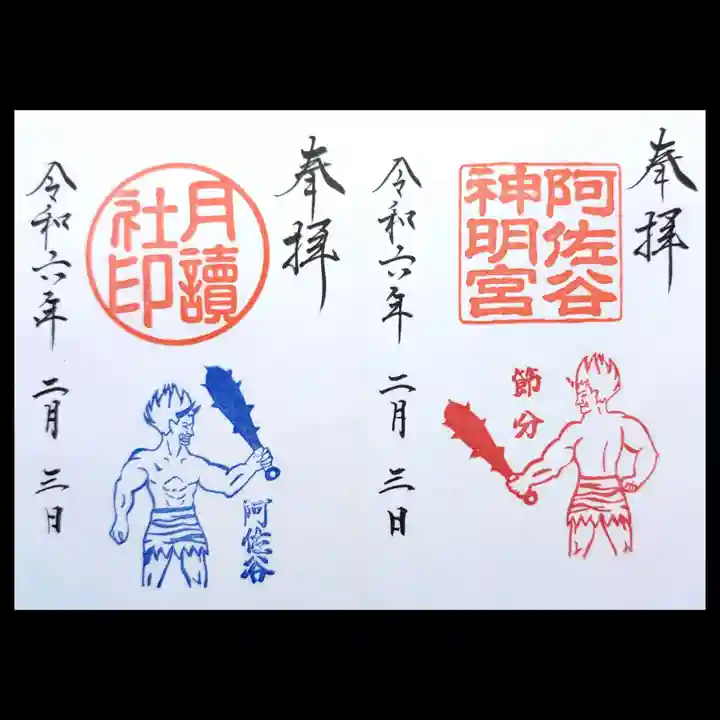 奉拝
阿佐谷
神明宮
節分
令和六年 二月 三日
奉拝
月讀
社印
阿佐谷
令和六年 二月 三日